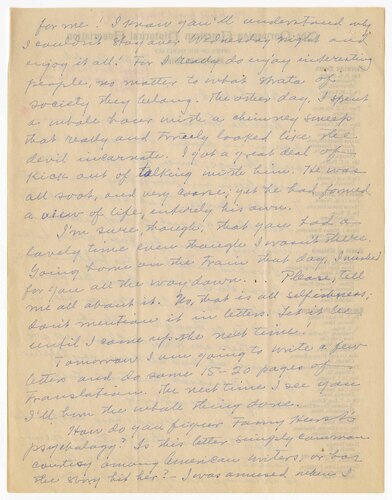 for me! I know you'll understand why
I couldn't stay over Tuesday night and
enjoy it all! For I really do enjoy interesting
people, no matter to what strata of
society they belong. The other day, I spent
a whole hour with a chimney sweep
that really and truly looked like the
devil incarnate. I got a great deal of
kick out of talking with him. He was
all soot, and very coarse; yet he had formed
a view of life, entirely his own.
I'm sure, though, that you had a
lovely time even though I wasn't there.
Going home on the train that day, I wished
for you all the way down... Please, tell
me all about it. No, that is all selfishness;
don't mention it in letters. Let it be
until I come up the next time.
Tomorrow I am going to write a few
letters and do some 15-20 pages of
translation. The next time I see you
I'll have the whole thing done.
How do you figure Fanny Hurst's
psychology? Is this letter simply common
courtesy among American writers, or has
the story hit her? — I was amused when I